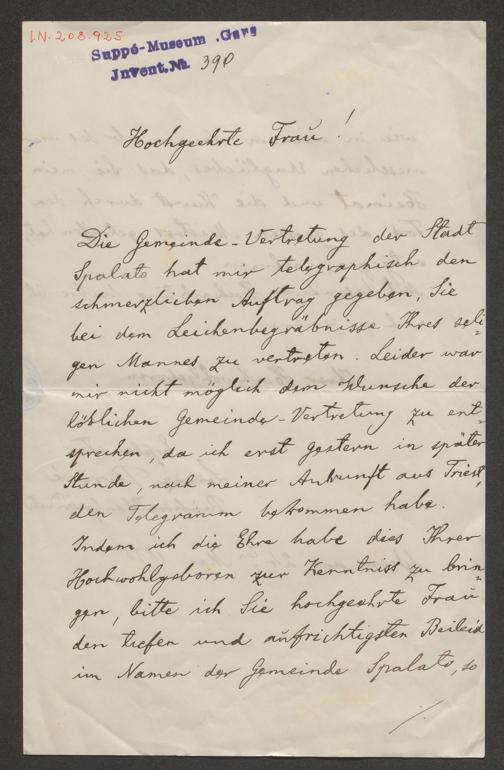 I.N. 208.925
Suppé-Museum Gars
Invent.№ 390
Hochgeehrte Frau!
Die Gemeinde-Vertretung der Stadt
Spalato hat mir telegraphisch den
schmerzlichen Auftrag gegeben, Sie
bei dem Leichenbegräbnisse Ihres seli-
gen Mannes zu vertreten. Leider war
mir nicht möglich dem Wunsche der
löblichen Gemeinde-Vertretung zu ent-
sprechen, da ich erst gestern in später
Stunde, nach meiner Ankunft aus Triest,
den Telegramm bekommen habe.
Indem ich die Ehre habe dies Ihrer
Hochwohlgeboren zur Kenntniss zu brin-
gen, bitte ich Sie hochgeehrte Frau
den tiefen und aufrichtigsten Beileid
im Namen der Gemeinde Spalato, so
./.